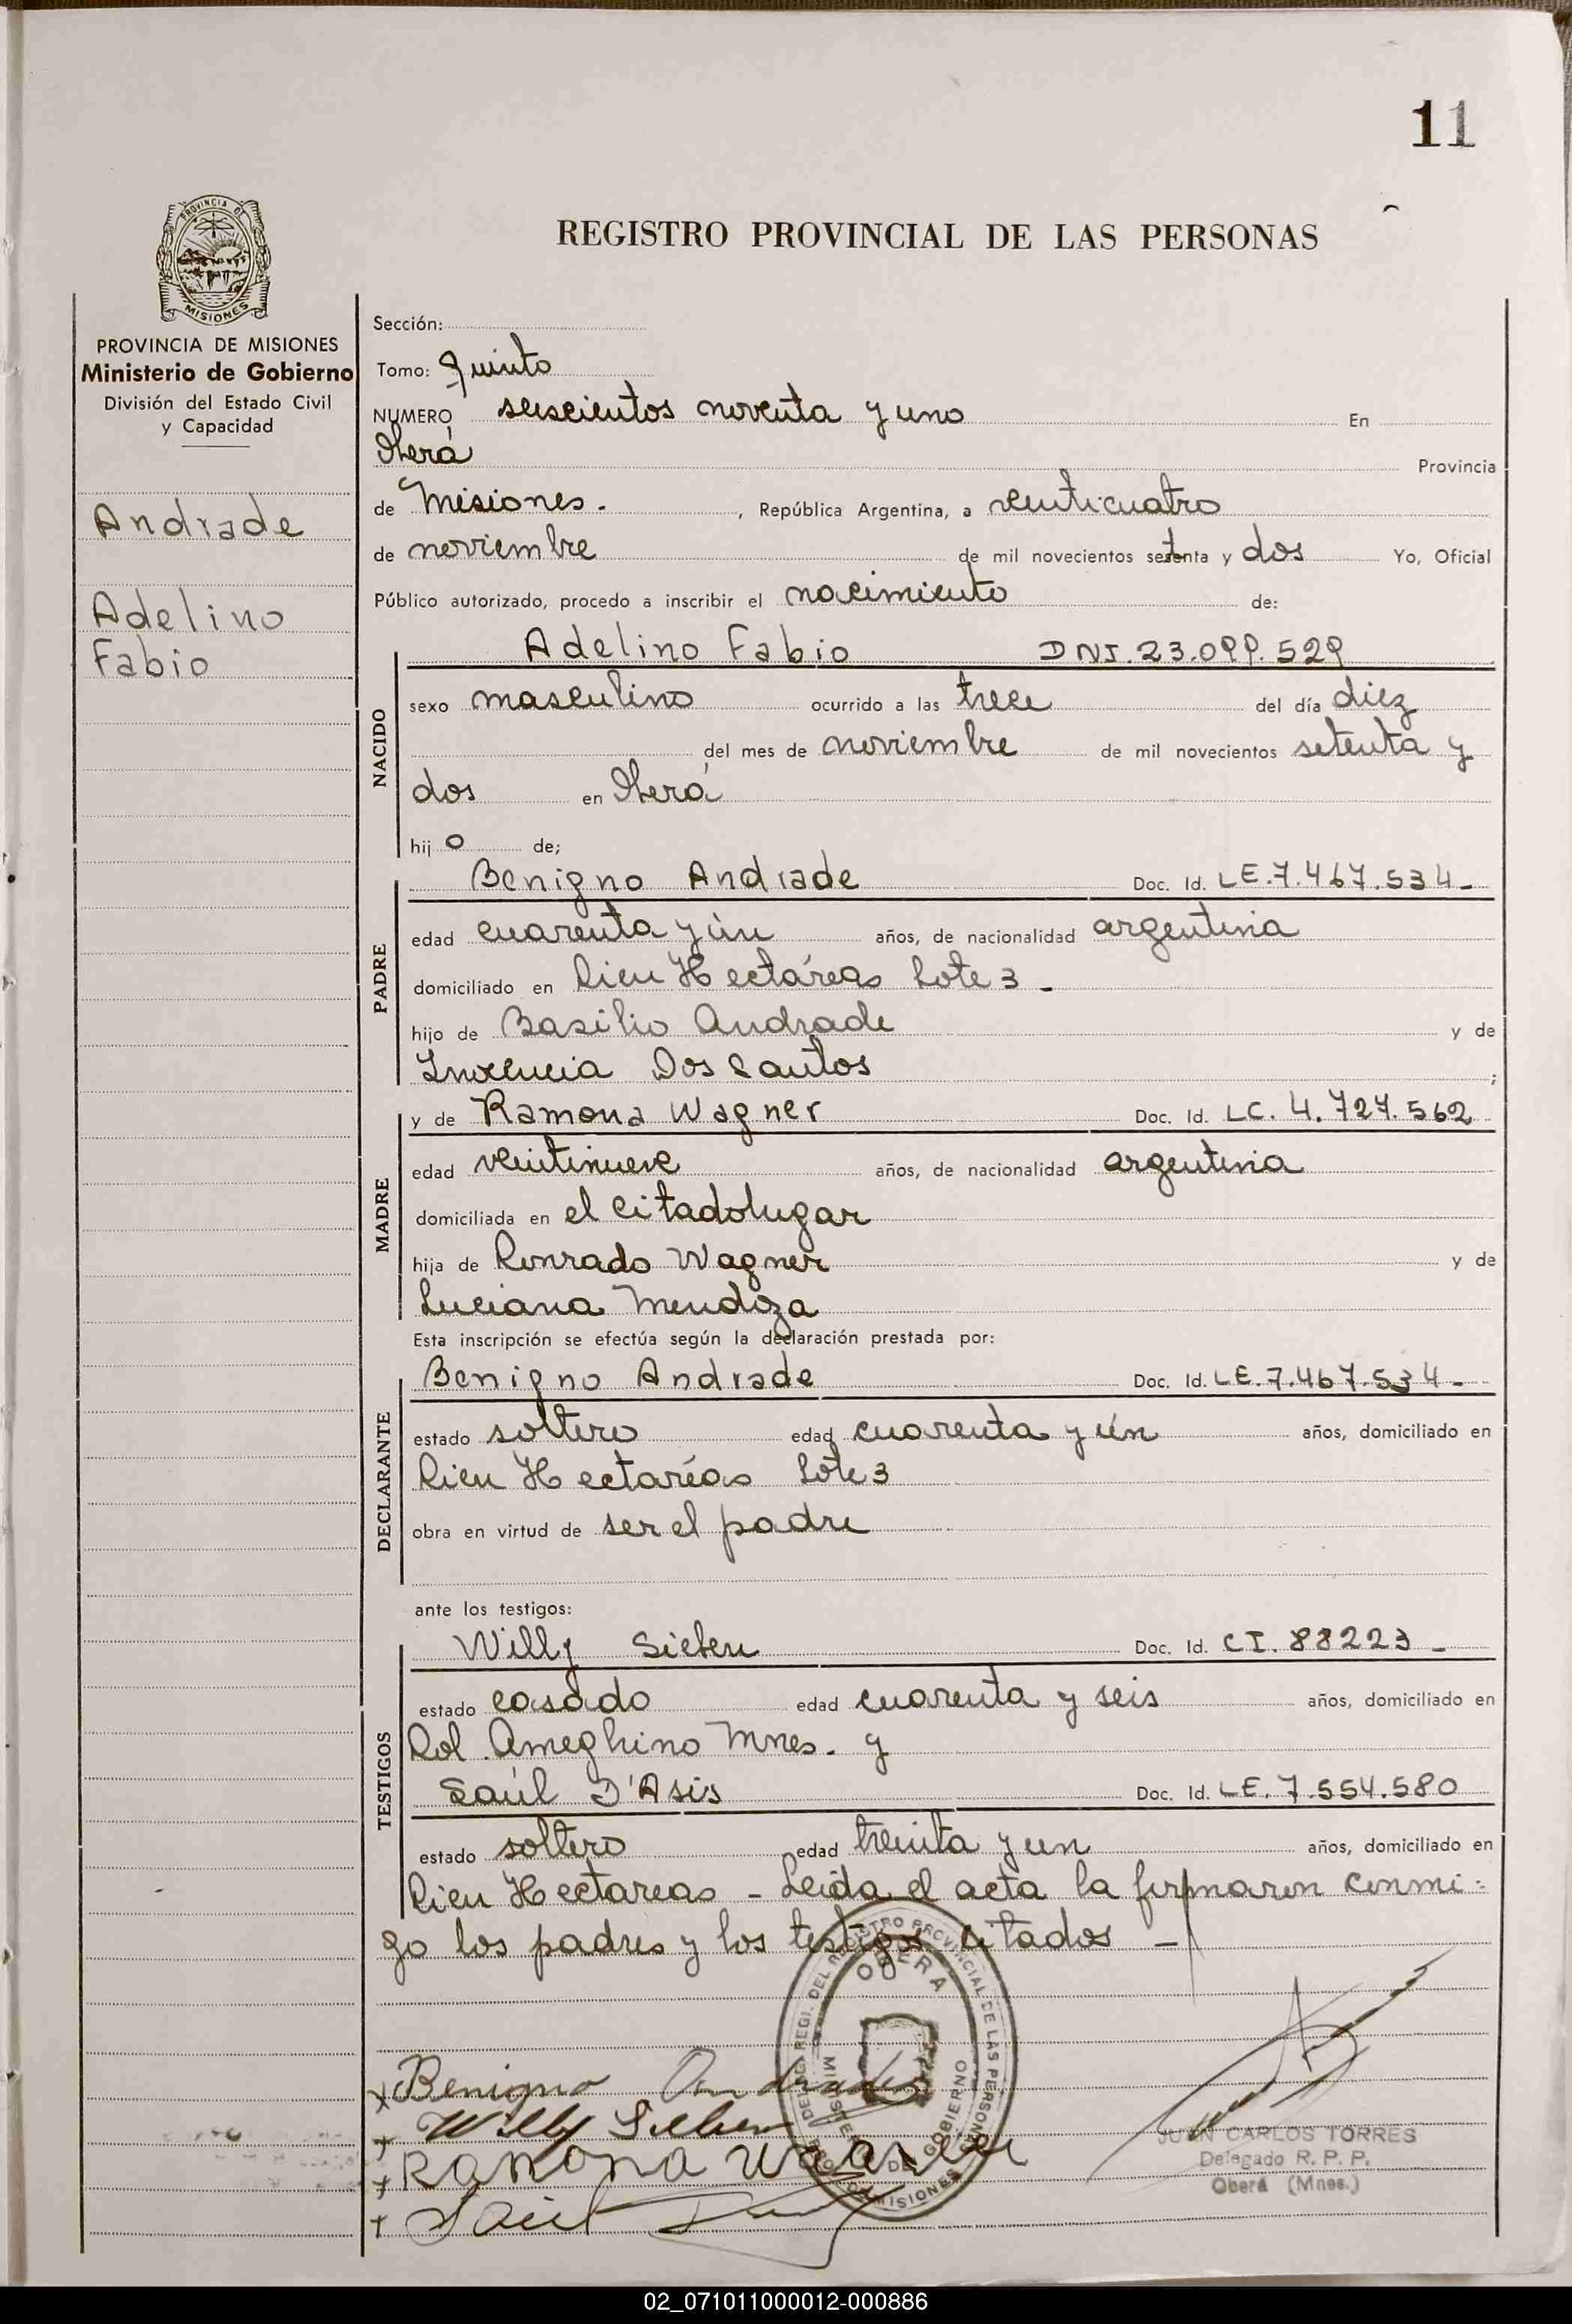 11
PROVINCIA DE
MISIONES
REGISTRO PROVINCIAL DE LAS PERSONAS
PROVINCIA DE MISIONES
Ministerio de Gobierno
División del Estado Civil
y Capacidad
Andrade
Adelino
Fabio
Sección:
Tomo: Quinto
NUMERO seiscientos noventa y uno En
Oberá Provincia
de Misiones. , República Argentina, a veinticuatro
de noviembre de mil novecientos setenta y dos Yo, Oficial
Público autorizado, procedo a inscribir el nacimiento de:
NACIDO
Adelino Fabio DNI. 23.099.529
sexo masculino ocurrido a las trece del día diez
del mes de noviembre de mil novecientos setenta y
dos en Oberá
hij o de;
PADRE
Benigno Andrade Doc. Id. LE.7.467.534-
edad cuarenta y ún años, de nacionalidad argentina
domiciliado en Cien Hectáreas Lote 3 -
hijo de Basilio Andrade y de
Inocencia Dos Santos ;
MADRE
y de Ramona Wagner Doc. Id. LC. 4.727.562
edad veintinueve años, de nacionalidad argentina
domiciliada en el citado lugar
hija de Conrado Wagner y de
Luciana Mendoza
Esta inscripción se efectúa según la declaración prestada por:
DECLARANTE
Benigno Andrade Doc. Id. LE.7.467.534-
estado soltero edad cuarenta y ún años, domiciliado en
Cien Hectaréas Lote 3
obra en virtud de ser el padre
ante los testigos:
TESTIGOS
Willy Sieben Doc. Id. CI. 88223 -
estado casado edad cuarenta y seis años, domiciliado en
Col. Ameghino Mnes. y
Saúl D'Asis Doc. Id. LE. 7.554.580
estado soltero edad treinta y un años, domiciliado en
Cien Hectareas - Leida el acta la firmaron conmi-
go los padres y los testigos citados -
DELEG. REGI. DEL REGISTRO PROVINCIAL DE LAS PERSONAS
OBERA
MINISTERIO DE GOBIERNO
MISIONES
Benigno Andrade
Willy Sieben
Ramona Wagner
Saúl
JUAN CARLOS TORRES
Delegado R. P. P.
Oberá (Mnes.)
02_071011000012-000886